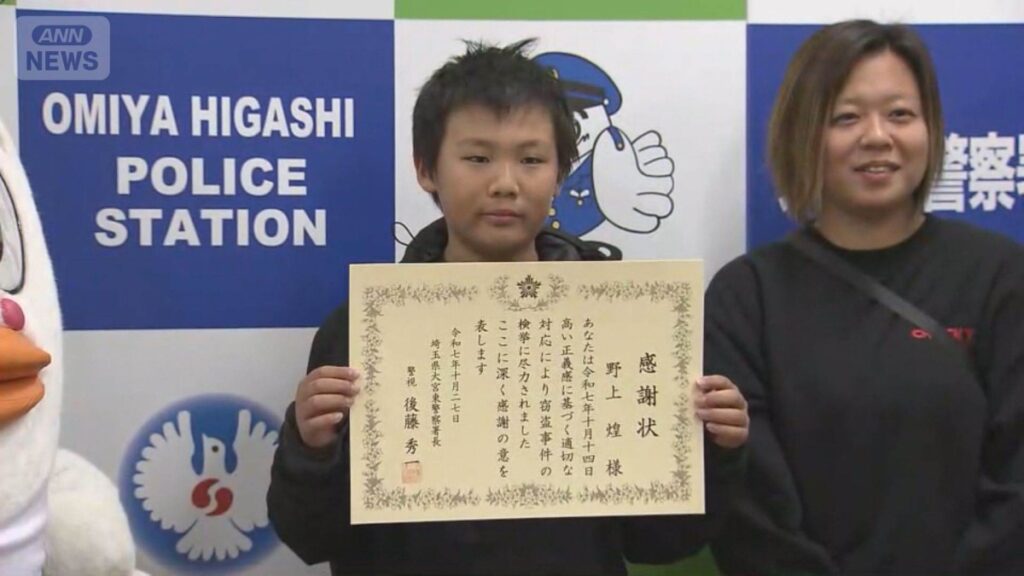 ANN
NEWS
OMIYA HIGASHI
POLICE
STATION
警察署
感謝状
野上 煌 様
あなたは令和七年十月十四日
高い正義感に基づく適切な
対応により窃盗事件の
検挙に尽力されました
ここに深く感謝の意を
表します
令和七年十月二七日
埼玉県大宮東警察署長
警視 後藤 秀